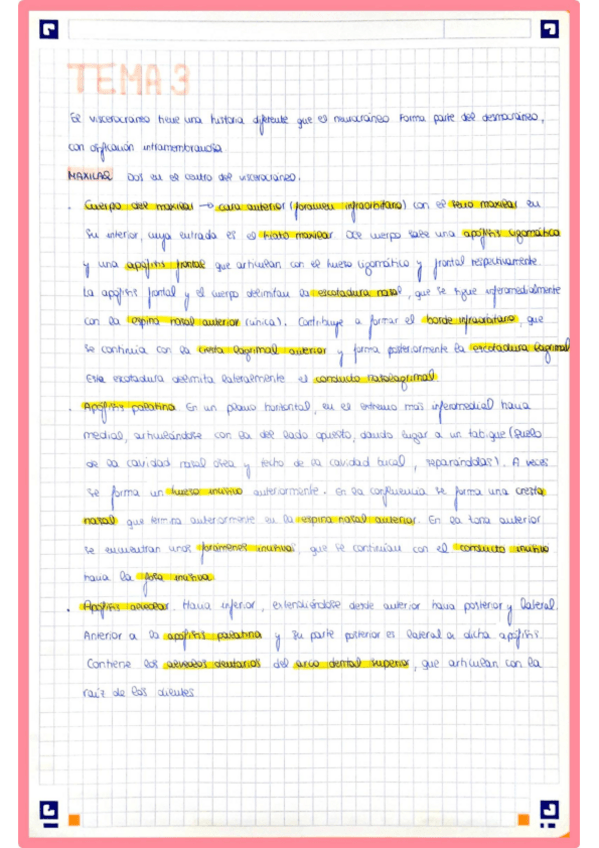 TEMA 3
El viscerocráneo tiene una historia diferente que el neurocráneo. Forma parte del desmocráneo,
con osificación intramembranosa.
MAXILAR Dos en el centro del viscerocráneo.
. Cuerpo del maxilar → cara anterior (foramen infraorbitario) con el seno maxilar en
su interior, cuya entrada es el hiato maxilar. Del cuerpo sale una apófisis cigomática
y una apófisis frontal que articulan con el hueso cigomático y frontal respectivamente.
La apófisis frontal y el cuerpo delimitan la escotadura nasal, que se sigue inferomedialmente
con la espina nasal anterior (única). Contribuye a formar el borde infraorbitario, que
se continúa con la cresta lagrimal anterior y forma posteriormente la escotadura lagrimal.
Esta escotadura delimita lateralmente el conducto nasolagrimal.
. Apófisis palatina. En un plano horizontal, en el extremo más inferomedial hacia
medial, articulándose con la del lado opuesto, dando lugar a un tabique (suelo
de la cavidad nasal ósea y techo de la cavidad bucal, separándolas). A veces
se forma un hueso incisivo anteriormente. En la confluencia se forma una cresta
nasal que termina anteriormente en la espina nasal anterior. En la zona anterior
se encuentran unos forámenes incisivos, que se continúan con el conducto incisivo
hacia la fosa incisiva.
. Apófisis alveolar. Hacia inferior, extendiéndose desde anterior hacia posterior y lateral.
Anterior a la apófisis palatina y su parte posterior es lateral a dicha apófisis.
Contiene los alveolos dentarios del arco dental superior, que articulan con la
raíz de los dientes